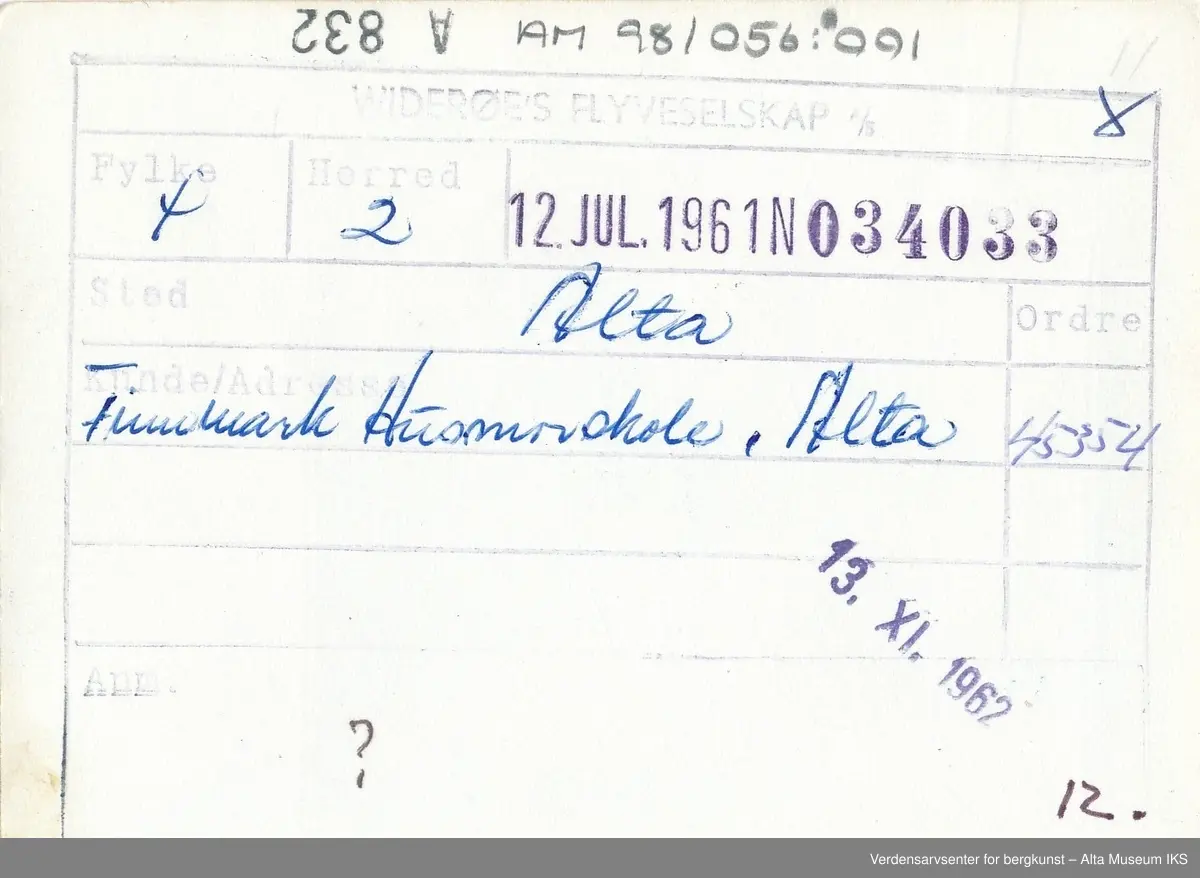 A 832 AM 98/056:091
11
WIDERØE'S FLYVESELSKAP A/S
X
Fylke Herred
4 2 12. JUL. 1961 N 034033
Sted Alta Ordre
Kunde/Adresse
Finnmark Husmorskole, Alta 45354
13. XI. 1962
Anm.
?
12.
Verdensarvsenter for bergkunst – Alta Museum IKS